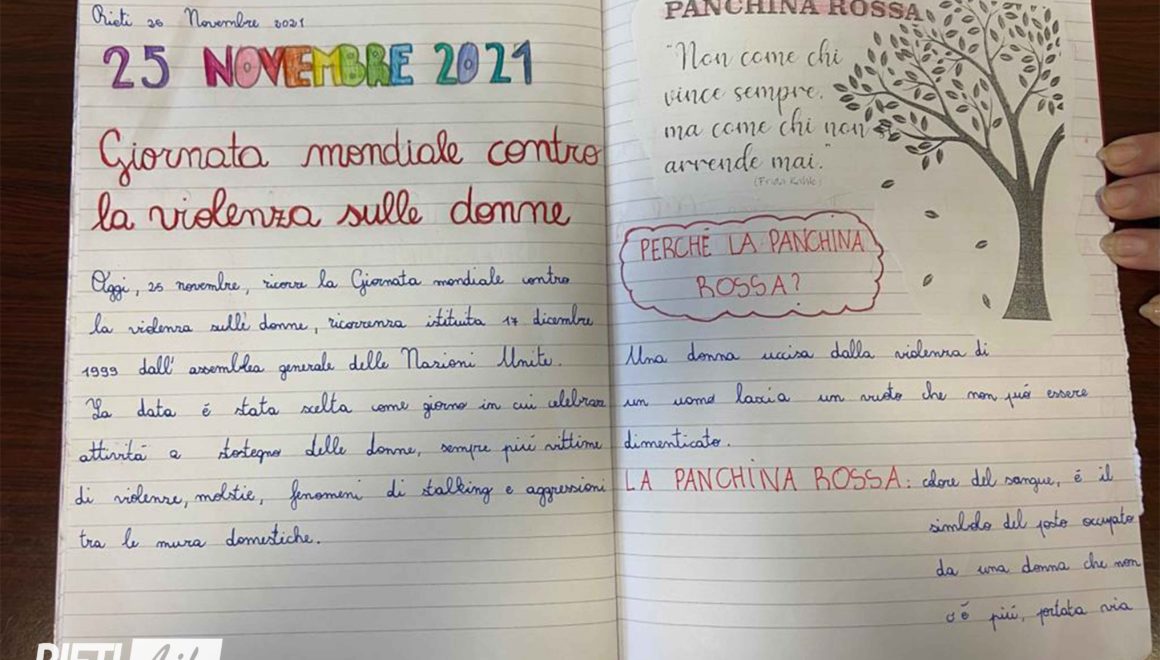 Rieti 25 Novembre 2021
25 NOVEMBRE 2021
Giornata mondiale contro
la violenza sulle donne
Oggi, 25 novembre, ricorre la Giornata mondiale contro
la violenza sulle donne, ricorrenza istituita 17 dicembre
1999 dall' assemblea generale delle Nazioni Unite.
La data é stata scelta come giorno in cui celebrare
attivitá a sostegno delle donne, sempre piú vittime
di violenze, molstie, fenomeni di stalking e aggressioni
tra le mura domestiche.
PANCHINA ROSSA
"Non come chi
vince sempre.
ma come chi non
arrende mai."
(Frida Kahlo)
PERCHÉ LA PANCHINA
ROSSA?
Una donna uccisa dalla violenza di
un uomo lascia un vuoto che non puó essere
dimenticato.
LA PANCHINA ROSSA: colore del sangue, é il
simbolo del posto occupato
da una donna che non
c'é piú, portata via
RIETI Life